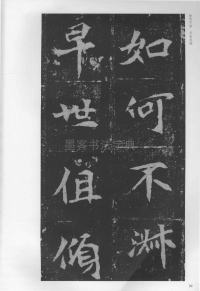 如何不淑
早世徂傾
墨客书法字典